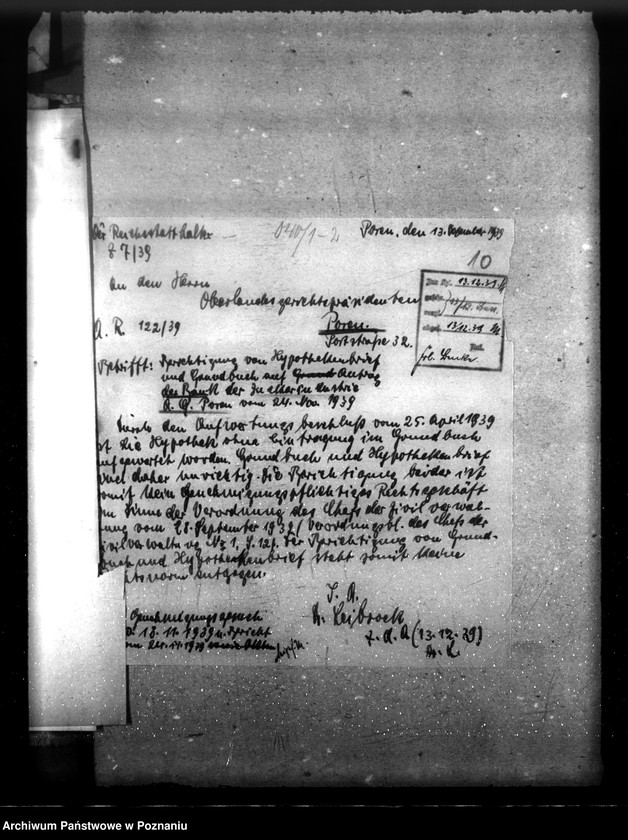 Der Reichsstatthalter — 040/1-2 Posen, den 13. Dezember 1939
f 7/39
10
An den Herrn
Oberlandesgerichtspräsidenten
13.12.39
13.12.39
A. R. 122/39
Posen.
Poststraße 32.
Betrifft: Berichtigung von Hypothekenbrief
und Grundbuch auf Antrag
der Bank der Zuckerindustrie
A. G. Posen vom 24. Nov. 1939
Durch den Aufwertungsbeschluß vom 25. April 1939
ist die Hypothek ohne Eintragung im Grundbuch
aufgewertet worden. Grundbuch und Hypothekenbrief
sind daher unrichtig. Die Berichtigung beider ist
somit kein genehmigungspflichtiges Rechtsgeschäft
im Sinne der Verordnung des Chefs der Zivilverwal-
tung vom 28. September 1939/ Verordnungsbl. des Chefs der
Zivilverwaltung Nr 1, S. 12/. Der Berichtigung von Grund-
buch und Hypothekenbrief steht somit keine
tsnorm entgegen.
I. A.
Genehmigungsgesuch
13.11.1939 u. Bericht
vom 24.11.1939
z. d. A (13.12.39)
Archiwum Państwowe w Poznaniu